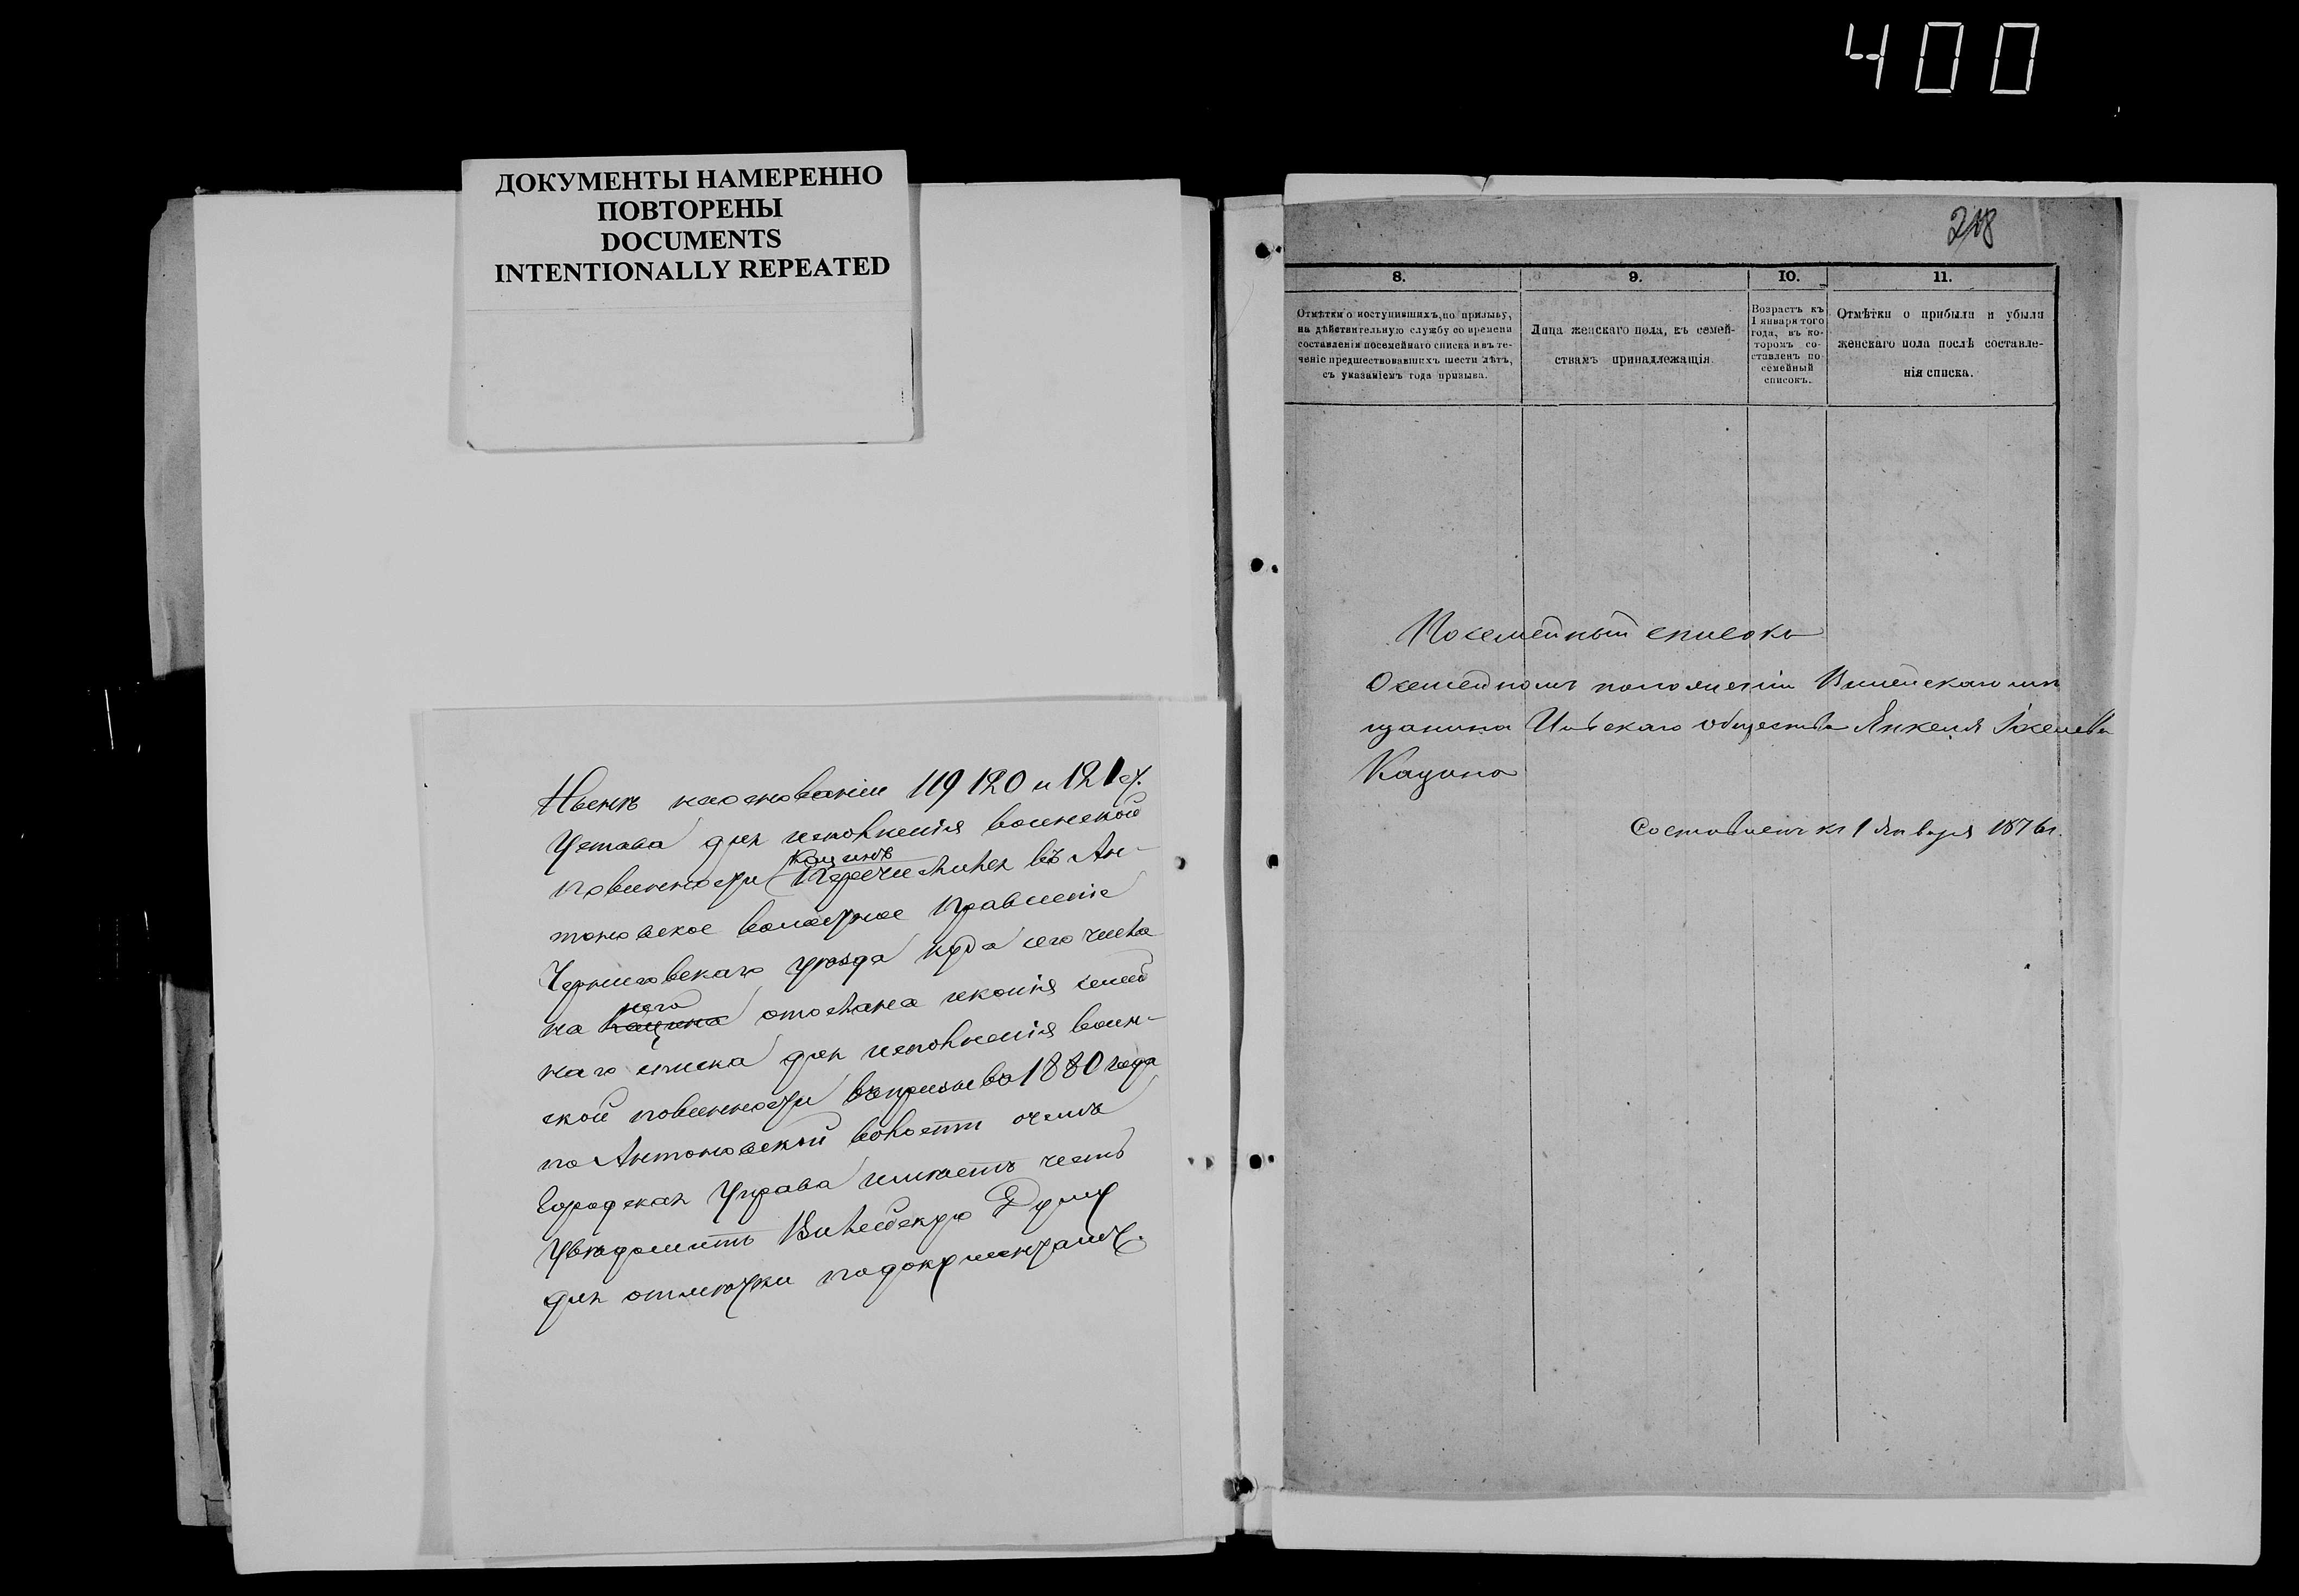 400
ДОКУМЕНТЫ НАМЕРЕННО
ПОВТОРЕНЫ
DOCUMENTS
INTENTIONALLY REPEATED
на основаніи 119 120 и 121 ст.
Устава для исполненія воинской
Кацинъ
повинности перечисленъ въ Ан-
тоновское волостное Правленіе
Черниговскаго уѣзда куда его числа
него
на Кацина отослана и копія семей
наго списка для исполненія воин-
ской повинности въ призывъ 1880 года
по Антоновской волости о чемъ
Городская Управа имѣетъ честь
Увѣдомить Вилейскую Думу
для отмѣтки по документамъ.
218
8.
9.
10.
11.
Отмѣтки о поступившихъ, по призыву,
на дѣйствительную службу со времени
составленія посемейнаго списка и въ те-
ченіе предшествовавшихъ шести лѣтъ,
съ указаніемъ года призыва.
Лица женскаго пола, къ семей-
ствамъ принадлежащія
Возрастъ къ
1 января того
года, въ ко-
торомъ со-
ставленъ по-
семейный
списокъ.
Отмѣтки о прибыли и убыли
женскаго пола послѣ составле-
нія списка.
Посемейный списокъ
О семейномъ положеніи Вилейскаго мѣ
щанина Ильскаго общества Янкеля
Кацина
Составленъ къ 1 Января 1876 г.